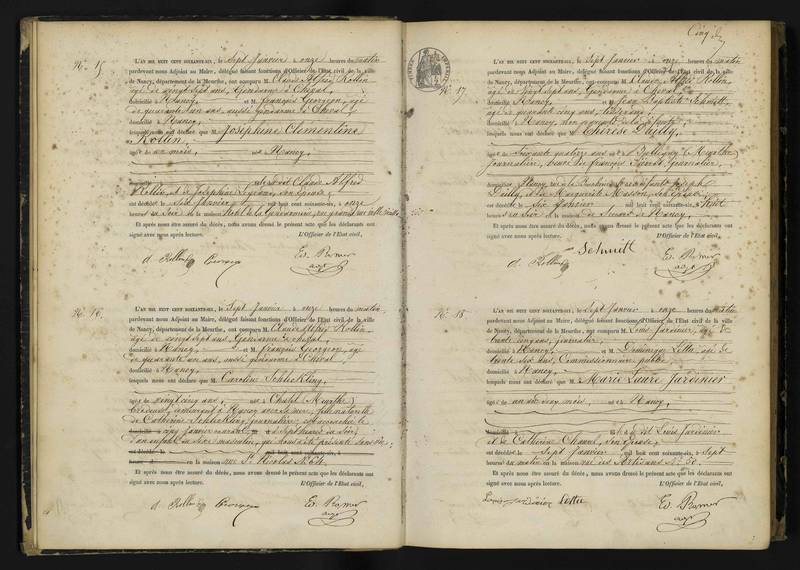 N°. 15
L'AN MIL HUIT CENT SOIXANTE-SIX, le sept Janvier à onze heures du matin
pardevant nous Adjoint au Maire, délégué faisant fonctions d'Officier de l'Etat civil de la ville
de Nancy, département de la Meurthe, ont comparu M. Claude Alfred Rollin,
âgé de vingt sept ans, Gendarme à Cheval,
domicilié à Nancy, et M. François Georgeon, âgé
de quarante un ans, aussi Gendarme à Cheval
domicilié à Nancy,
lesquels nous ont déclaré que M. Joséphine Clémentine
Rollin,
âgée de un mois, née à Nancy,
dudit Claude Alfred
Rollin, et de Joséphine
est décédée le six Janvier mil huit cent soixante-six, à onze
heures du soir en la maison
Et après nous être assuré du décès, nous avons dressé le présent acte que les déclarants ont
signé avec nous après lecture. L'Officier de l'Etat civil,
A. Rollin Georgeon
N°. 16.
L'AN MIL HUIT CENT SOIXANTE-SIX, le sept Janvier à onze heures du matin,
pardevant nous Adjoint au Maire, délégué faisant fonctions d'Officier de l'Etat civil de la ville
de Nancy, département de la Meurthe, ont comparu M. Claude Alfred Rollin,
âgé de vingt sept ans, Gendarme à cheval,
domicilié à Nancy, et M. François Georgeon, âgé
de quarante un ans, aussi gendarme à Cheval
domicilié à Nancy,
lesquels nous ont déclaré que M. Caroline Schlickling,
âgée de vingt cinq ans, née à Châtel
de Catherine Schlickling, journalière, est accouchée le
cinq Janvier courant à sept heures du soir,
d'un enfant du sexe masculin, qu'ils nous ont présenté sans vie,
en la maison rue St. Nicolas N°
Et après nous être assuré du décès, nous avons dressé le présent acte que les déclarants ont
signé avec nous après lecture. L'Officier de l'Etat civil,
A. Rollin Georgeon
Cinq
N°. 17.
L'AN MIL HUIT CENT SOIXANTE-SIX, le sept Janvier à onze heures du matin
pardevant nous Adjoint au Maire, délégué faisant fonctions d'Officier de l'Etat civil de la ville
de Nancy, département de la Meurthe, ont comparu M. Claude Alfred Rollin,
âgé de vingt sept ans, Gendarme à Cheval,
domicilié à Nancy, et M. Jean Baptiste Schmitt,
âgé de quarante cinq ans,
domicilié à Nancy,
lesquels nous ont déclaré que M. Thérèse Dailly,
âgée de soixante quatorze ans née à Bulligny (Meurthe)
journalière, veuve de François
est décédée le six Janvier mil huit cent soixante-six, à sept
heures du soir en la maison de Secours de Nancy,
Et après nous être assuré du décès, nous avons dressé le présent acte que les déclarants ont
signé avec nous après lecture. L'Officier de l'Etat civil,
A. Rollin Schmitt
N°. 18.
L'AN MIL HUIT CENT SOIXANTE-SIX, le sept Janvier à onze heures du matin
pardevant nous Adjoint au Maire, délégué faisant fonctions d'Officier de l'Etat civil de la ville
de Nancy, département de la Meurthe, ont comparu M. Louis Jardinier, âgé de
trente cinq ans, journalier,
domicilié à Nancy, et M. Dominique Lette, âgé de
trente six ans, Commissionnaire public
domicilié à Nancy,
lesquels nous ont déclaré que M. Marie Laure Jardinier
âgée de un an deux mois, née à Nancy,
fille dudit Louis Jardinier
et de Catherine Chanel, son épouse,
est décédée le sept Janvier mil huit cent soixante-six, à sept
heures du matin en la maison rue des Artisans N° 50.
Et après nous être assuré du décès, nous avons dressé le présent acte que les déclarants ont
signé avec nous après lecture. L'Officier de l'Etat civil,
Louis Jardinier Lette